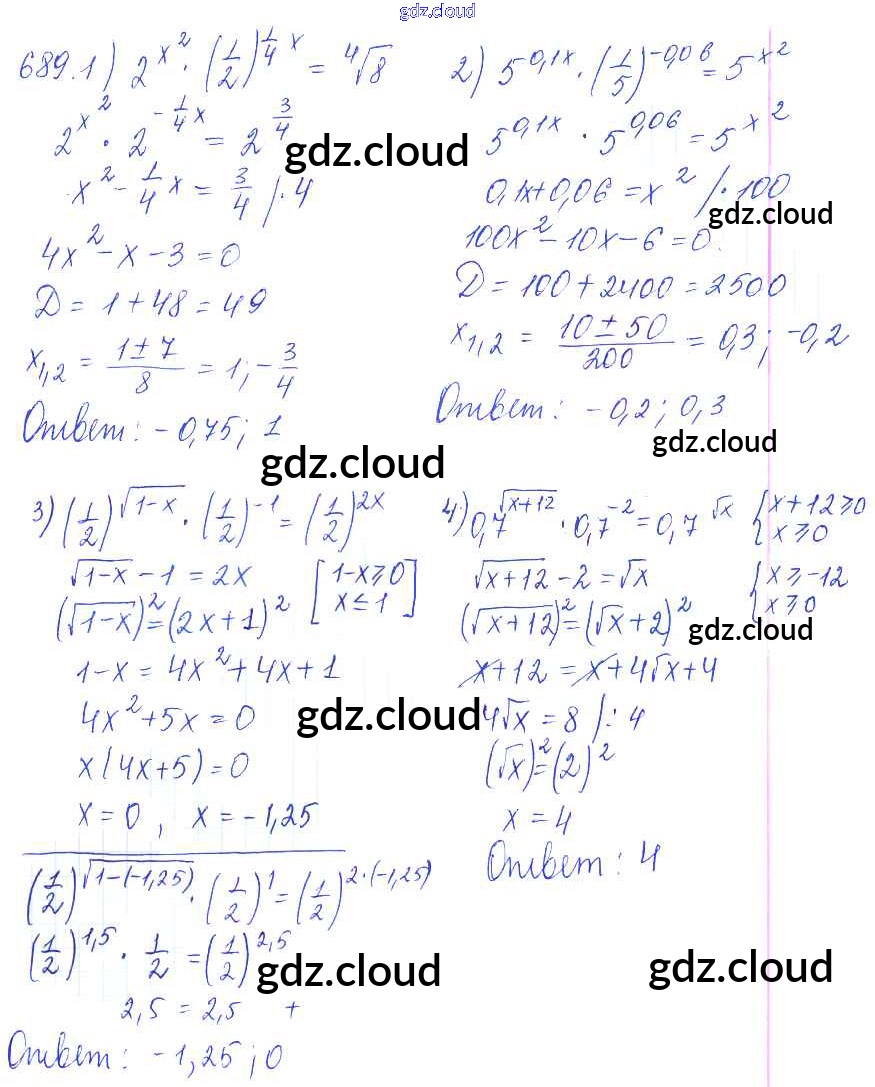 gdz.cloud
689.1) 2^{x^2} · (1/2)^{1/4 x} = ⁴√8
2^{x^2} · 2^{-1/4 x} = 2^{3/4}
gdz.cloud
x^2 - 1/4 x = 3/4 /·4
4x^2 - x - 3 = 0
D = 1 + 48 = 49
x_{1,2} = (1 ± 7)/8 = 1; -3/4
Ответ: -0,75; 1
gdz.cloud
2) 5^{0,1x} · (1/5)^{-0,06} = 5^{x^2}
5^{0,1x} · 5^{0,06} = 5^{x^2}
0,1x + 0,06 = x^2 /·100
gdz.cloud
100x^2 - 10x - 6 = 0.
D = 100 + 2400 = 2500
x_{1,2} = (10 ± 50)/200 = 0,3; -0,2
Ответ: -0,2; 0,3
gdz.cloud
3) (1/2)^{√(1-x)} · (1/2)^{-1} = (1/2)^{2x}
√(1-x) - 1 = 2x [1-x ≥ 0
x ≤ 1]
(√(1-x))^2 = (2x+1)^2
1-x = 4x^2 + 4x + 1
4x^2 + 5x = 0
gdz.cloud
x(4x+5) = 0
x = 0, x = -1,25
(1/2)^{√(1-(-1,25))} · (1/2)^1 = (1/2)^{2·(-1,25)}
(1/2)^{1,5} · 1/2 = (1/2)^{2,5}
gdz.cloud
2,5 = 2,5 +
Ответ: -1,25; 0
4) 0,7^{√(x+12)} · 0,7^{-2} = 0,7^{√x} {x+12 ≥ 0
x ≥ 0
√(x+12) - 2 = √x {x ≥ -12
x ≥ 0
(√(x+12))^2 = (√x + 2)^2
gdz.cloud
x + 12 = x + 4√x + 4
4√x = 8 /: 4
(√x)^2 = (2)^2
x = 4
Ответ: 4
gdz.cloud